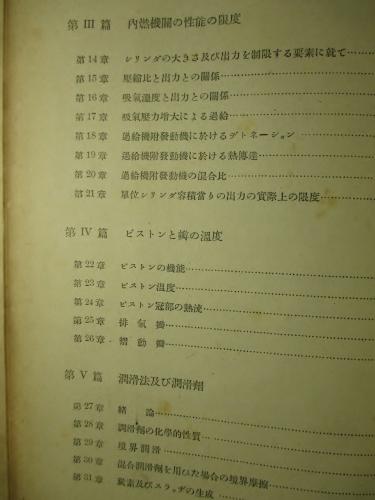 第 III 篇 內燃機關の性能の限度
第14章 シリンダの大きさ及び出力を制限する要素に就て
第15章 壓縮比と出力との關係
第16章 吸氣溫度と出力との關係
第17章 吸氣壓力增大による過給
第18章 過給機附發動機に於けるデトネーション
第19章 過給機附發動機に於ける熱傳達
第20章 過給機附發動機の混合比
第21章 單位シリンダ容積當りの出力の實際上の限度
第 IV 篇 ピストンと瓣の溫度
第22章 ピストンの機能
第23章 ピストン溫度
第24章 ピストン冠部の熱流
第25章 排氣瓣
第26章 褶動瓣
第 V 篇 潤滑法及び潤滑劑
第27章 緒論
第28章 潤滑劑の化學的性質
第29章 境界潤滑
第30章 混合潤滑劑を用ひた場合の境界摩擦
第31章 炭素及びスラッヂの生成